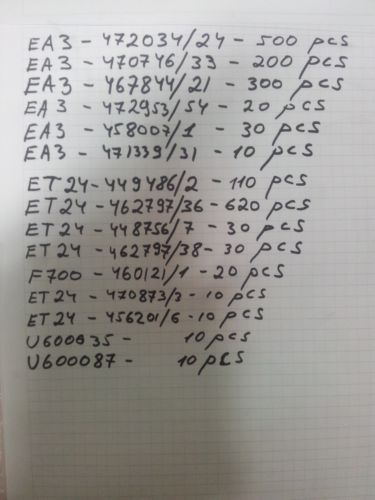 EA3 - 472034/24 - 500 pcs
EA3 - 470746/33 - 200 pcs
EA3 - 467844/21 - 300 pcs
EA3 - 472953/54 - 20 pcs
EA3 - 458007/1 - 30 pcs
EA3 - 471339/31 - 10 pcs
ET24 - 449486/2 - 110 pcs
ET24 - 462797/36 - 620 pcs
ET24 - 448756/7 - 30 pcs
ET24 - 462797/38 - 30 pcs
F700 - 460121/1 - 20 pcs
ET24 - 470873/3 - 10 pcs
ET24 - 456201/6 - 10 pcs
U600035 - 10 pcs
U600087 - 10 pcs